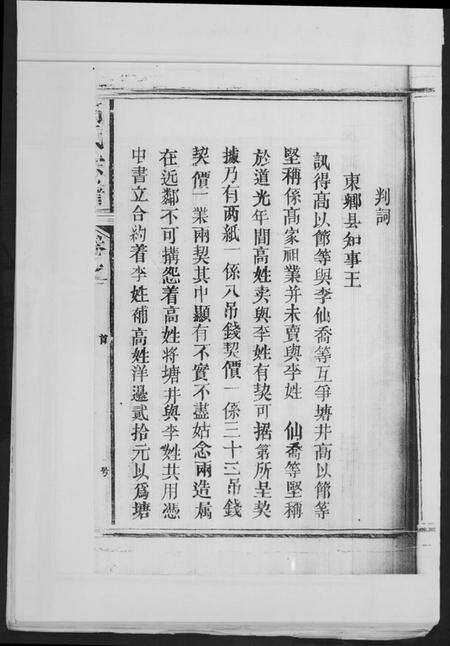 判詞
東鄉县知事王
訊得高以節等與李仙喬等互爭塘井高以節等
堅稱係高家祖業并未賣與李姓 仙喬等堅稱
於道光年間高姓卖與李姓有契可据第所呈契
據乃有两紙一係八吊錢契價一係三十三吊錢
契價一業兩契其中顯有不實不盡姑念兩造属
在近鄰不可搆怨着高姓将塘井與李姓共用憑
中書立合約着李姓補高姓洋邊貳拾元以爲塘
宗譜
首
号